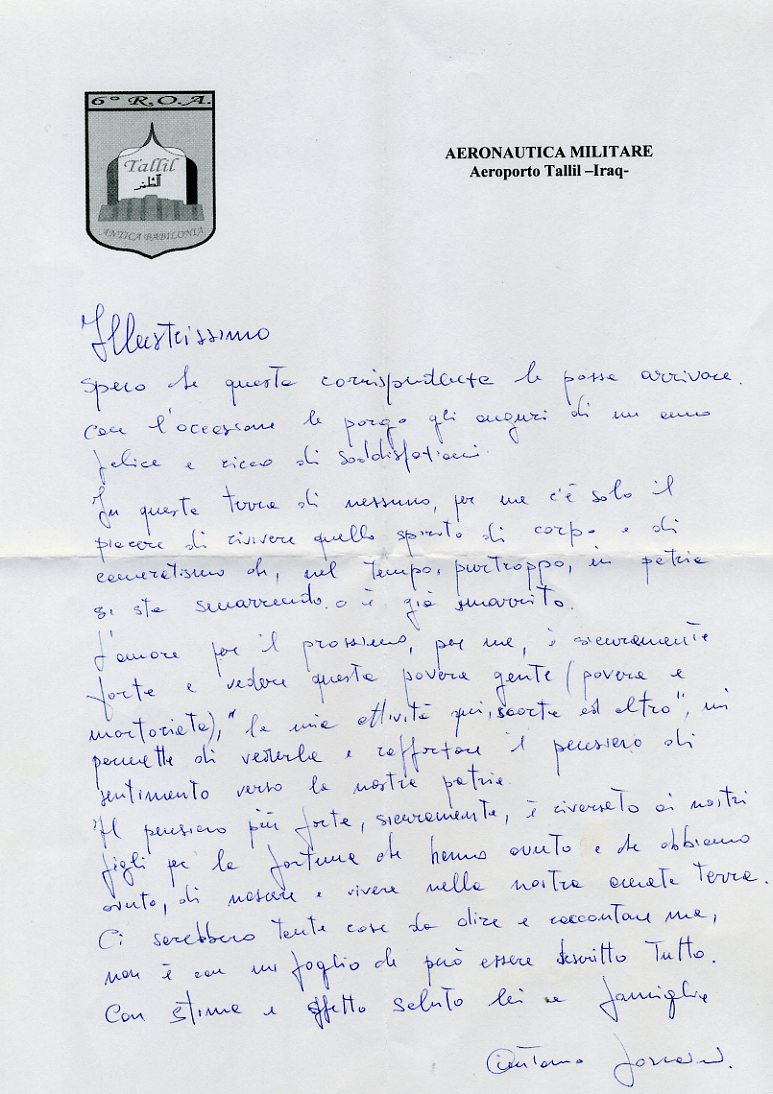 6° R.O.A.
Tallil
ANTICA BABILONIA
AERONAUTICA MILITARE
Aeroporto Tallil –Iraq-
Illustrissimo
Spero che questa corrispondenza le possa arrivare.
Con l'occasione le porgo gli auguri di un anno
felice e ricco di soddisfazioni.
In questa terra di nessuno, per me c'è solo il
piacere di rivivere quello spirito di corpo e di
cameratismo che, nel tempo, purtroppo, in patria
si sta smarrendo o è già smarrito.
L'amore per il prossimo, per me, è sicuramente
forte e vedere questa povera gente (povera e
martoriata), "la mia attività qui, scorta ed altro", mi
permette di vederla e rafforzare il pensiero di
sentimento verso la nostra patria.
Il pensiero più forte, sicuramente, è riversato ai nostri
figli per la fortuna che hanno avuto e che abbiamo
avuto, di nascere e vivere nella nostra amata terra.
Ci sarebbero tante cose da dire e raccontare ma,
non è con un foglio che può essere descritto tutto.
Con stima e affetto saluto lei e famiglia